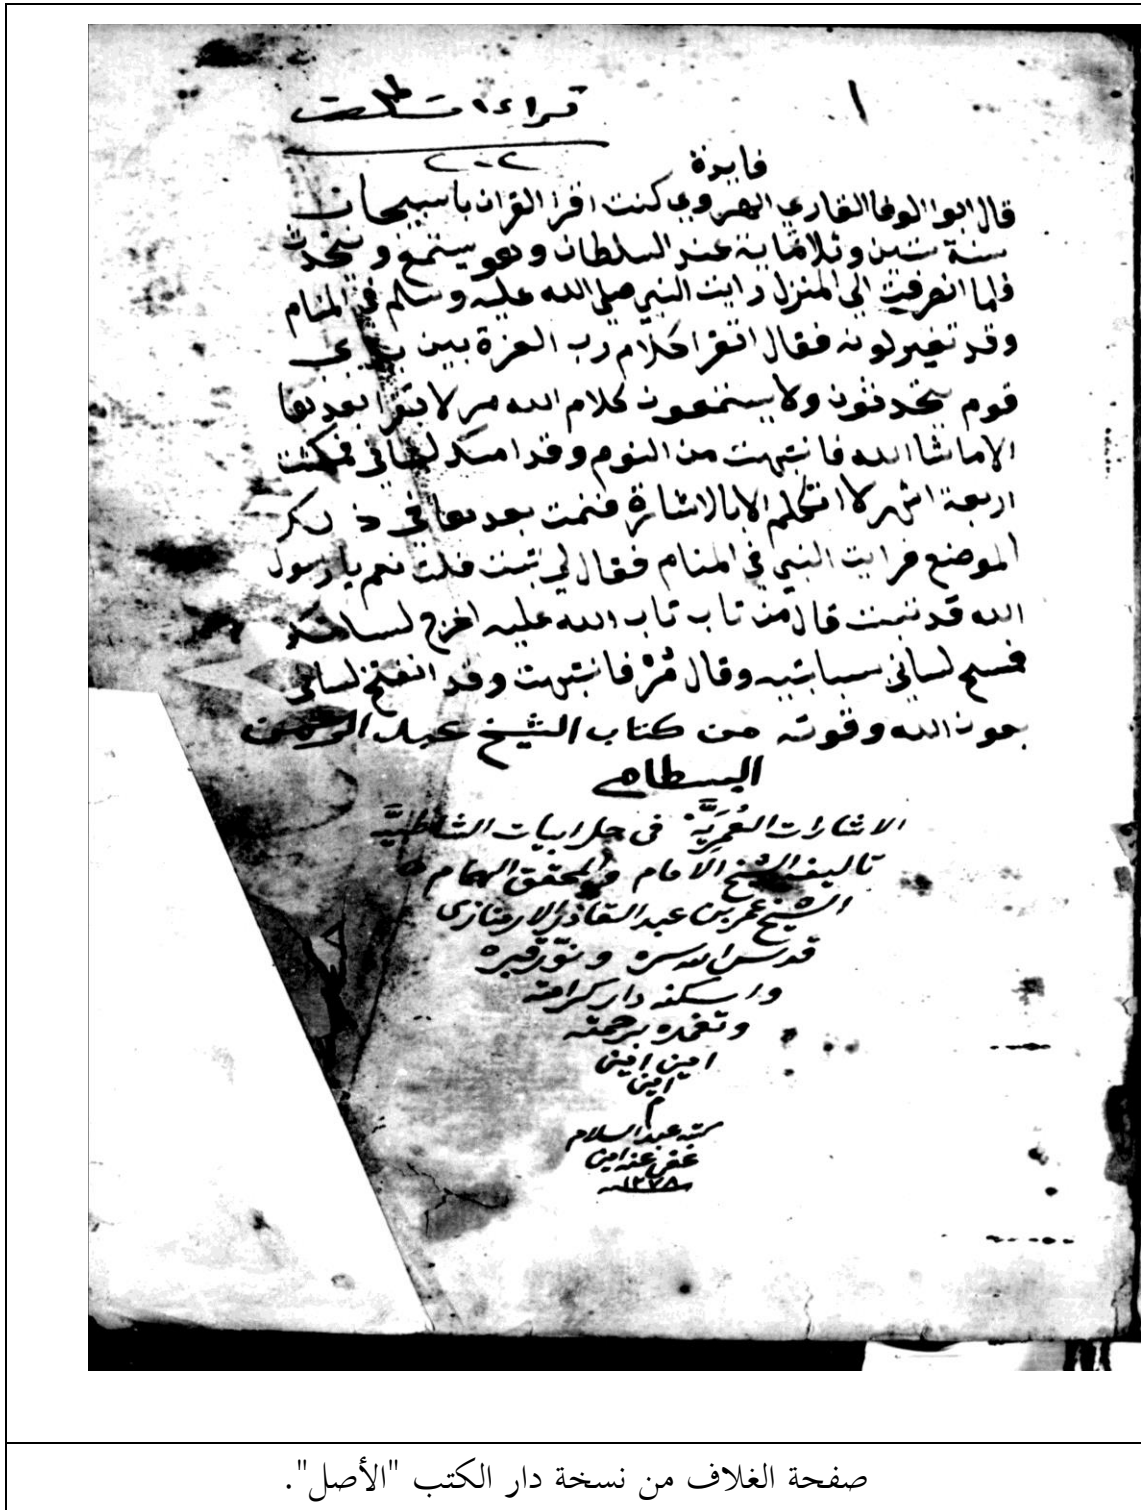 ١
قراءات طلعت
٢٠٢
فايدة
قال ابو الوفا القاري الهروي كنت اقرا القران باسبيجاب
سنة ستين وثلاثماية عند السلطان وهو يستمع ويتحدث
فلما انصرفت الي المنزل رايت النبي صلي الله عليه وسلم في المنام
وقد تغير لونه فقال اتقرا كلام رب العزة بين يدي
قوم يتحدثون ولا يستمعون كلام الله مر لا تقرا بعدها
الا ما شا الله فانتبهت من النوم وقد امسك لساني فمكثت
اربعة اشهر لا اتكلم الا بالاشارة فنمت بعدها في ذلك
الموضع فرايت النبي في المنام فقال لي تبت قلت نعم يا رسول
الله قد تبت قال من تاب تاب الله عليه اخرج لسانك
فمسح لساني سبابتيه وقال قم فانتبهت وقد انفتح لساني
بعون الله وقوته من كتاب الشيخ عبد الرحمن
البسطامي
الاشارات العُمَريَّة في حل ابيات الشاطبيَّة
تاليف الشيخ الامام والمحقق الهمام
الشيخ عمر بن عبد القادر الارمنازي
قدس الله سره ونوّر قبره
واسكنه دار كرامته
وتغمده برحمته
امين امين
امين
م
كتبه عبد السلام
عفي عنه امين
١٢٧٨
صفحة الغلاف من نسخة دار الكتب "الأصل".